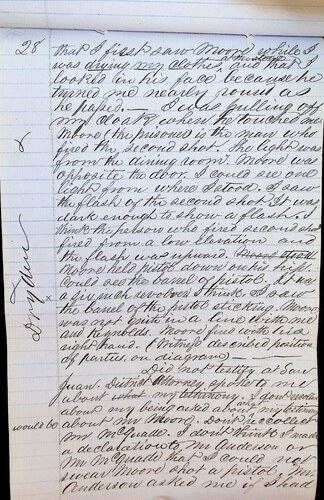 28 that I first saw Moore while I
was drying my clothes at the stove and that I
looked in his face because he
turned me nearly round as
he passed. — I was pulling off
my cloak when he touched me
Moore (the prisoner) is the man who
fired the second shot. The light was
from the dining room. Moore was
opposite the door. I could see one
light from where I stood. I saw
the flash of the second shot It was
dark enough to show a flash. I
think the person who fired second shot
fired from a low elevation and
the flash was upward.
Moore held pistol down on his hip.
Could see the barrel of pistol. It was
a six inch revolver I think. I saw
the barrel of the pistol sticking. Moore
was not quite in a line with me
and Reynolds. Moore fired with his
right hand. (Witness described position
of parties, on diagram) —
Did not testify at San
Juan. District Attorney spoke to me
about what my testimony. I don't
about my being asked about my testimony
would be about Mr Moore. Don't recollect
Mr McQuade. I don't think I made
a declaration to Mr Anderson or
Mr McQuade that I could not
swear Moore shot a pistol. Mr
Anderson asked me if I had